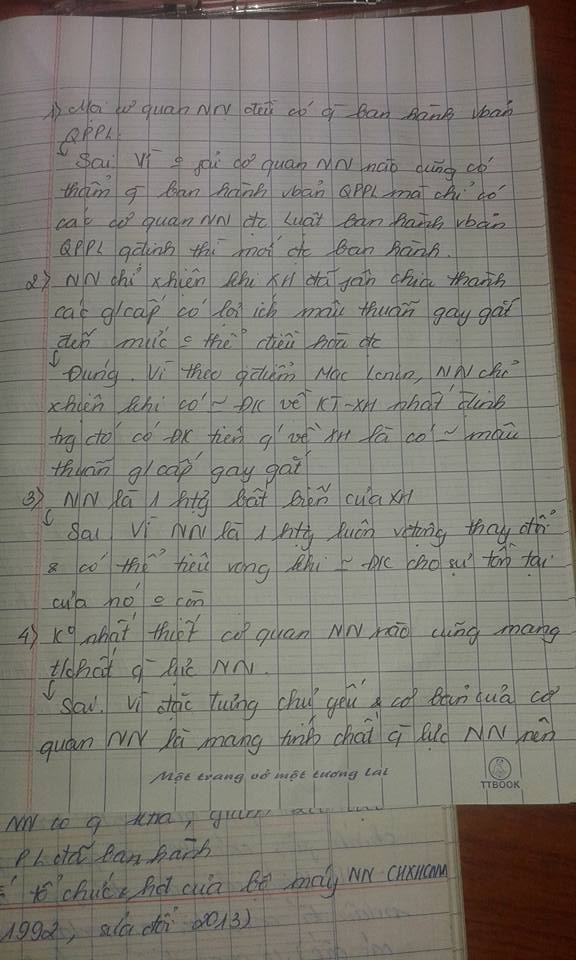 1) Mọi cơ quan NN đều có q ban hành vbản
QPPL.
Sai. Vì o fải cơ quan NN nào cũng có
thẩm q ban hành vbản QPPL mà chỉ có
các cơ quan NN đc Luật ban hành vbản
QPPL qđịnh thì mới đc ban hành.
2) NN chỉ xhiện khi XH đã fân chia thành
các g/cấp có lợi ích mâu thuẫn gay gắt
đến mức o thể điều hòa đc
Đúng. Vì theo qđiểm Mác Lenin, NN chỉ
xhiện khi có ~ ĐK về KT-XH nhất định
trg đó có ĐK tiên q' về XH là có ~ mâu
thuẫn g/cấp gay gắt
3) NN là 1 htg bất biến của XH
Sai. Vì NN là 1 htg luôn vđộng thay đổi
& có thể tiêu vong khi ~ ĐK cho sự tồn tại
của nó o còn
4) Ko nhất thiết cơ quan NN nào cũng mang
t/chất q lực NN.
Sai. Vì đặc trưng chủ yếu & cơ bản của cơ
quan NN là mang tính chất q lực NN nên
Một trang vở một tương lai
TTBOOK
NN có q
PL đã ban hành
tổ chức & hđ của bộ máy NN CHXHCNVN
1992, sửa đổi 2013)